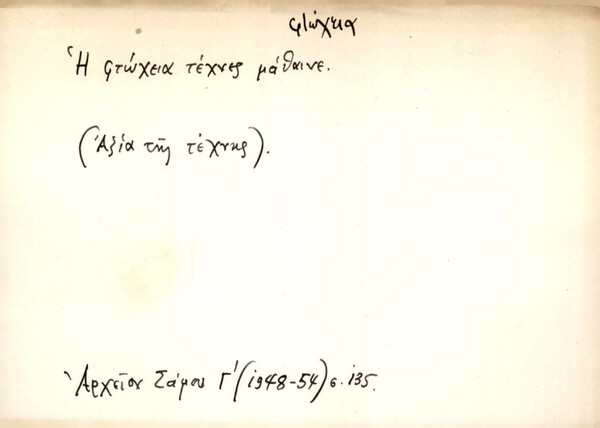 φτώχεια
Ἡ φτώχεια τέχνες μάθαινε.
(Ἀξία τῆς τέχνης).
Ἀρχεῖον Σάμου Γ' (1948-54) σ. 135.